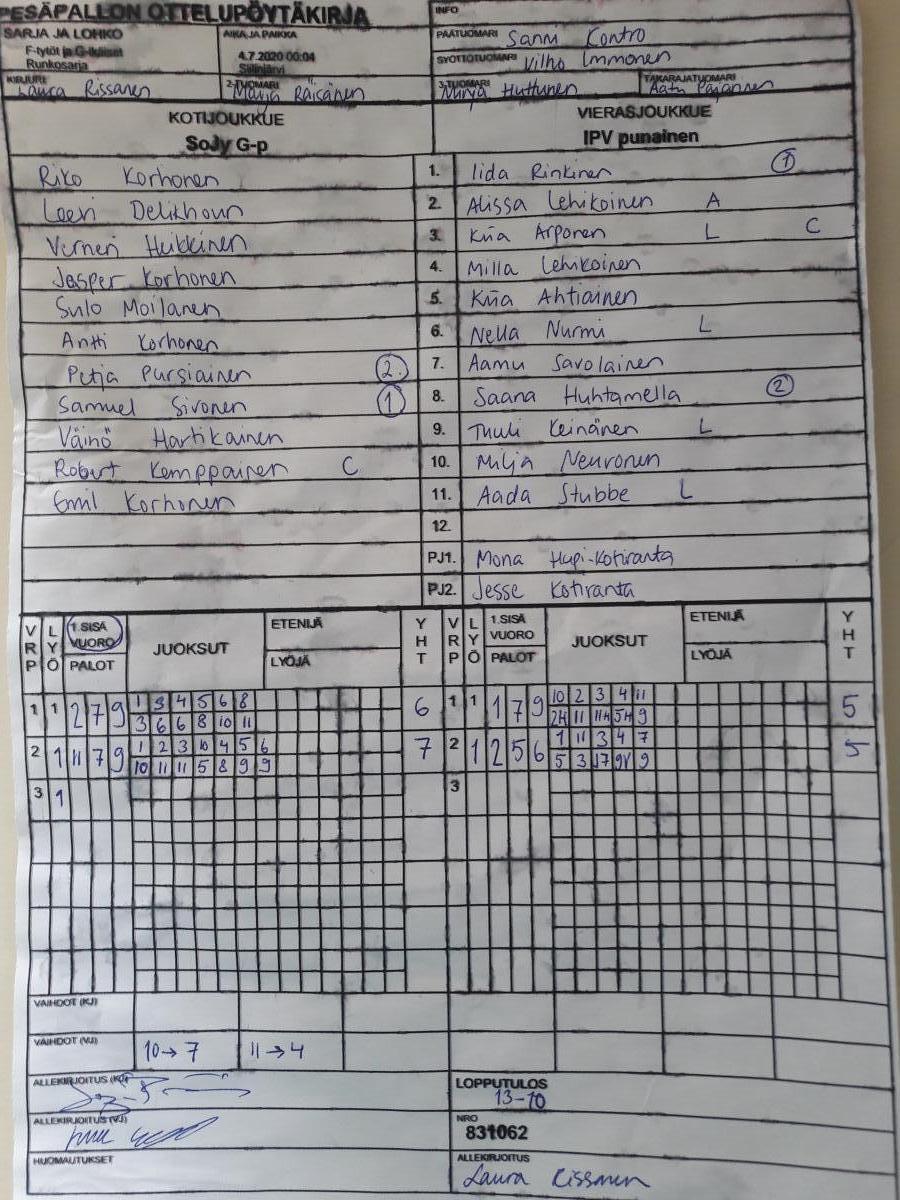 PESÄPALLON OTTELUPÖYTÄKIRJA
INFO
SARJA JA LOHKO
F-tytöt ja G-ikäiset
Runkosarja
AIKA JA PAIKKA
4.7.2020 00:04
Siilinjärvi
PÄÄTUOMARI Sanni Kontro
SYÖTTÖTUOMARI Vilho Immonen
KIRJURI
Laura Rissanen
2-TUOMARI
Marja Räisänen
3-TUOMARI
Mirja Huttunen
TAKARAJATUOMARI
Aatu Pajanen
KOTIJOUKKUE
SoJy G-p
VIERASJOUKKUE
IPV punainen
Riko Korhonen 1. Iida Rinkinen 1
Leevi Delikhoun 2. Alissa Lehikoinen A
Verneri Heikkinen 3. Kiia Arponen L C
Jesper Korhonen 4. Milla Lehikoinen
Sulo Moilanen 5. Kiia Ahtiainen
Antti Korhonen 6. Nella Nurmi L
Petja Pursiainen 2. 7. Aamu Savolainen
Samuel Sivonen 1 8. Saana Huhtamella 2
Väinö Hartikainen 9. Tuuli Keinänen L
Robert Kemppainen C 10. Milja Neuvonen
Emil Korhonen 11. Aada Stubbe L
12.
PJ1. Mona Hupi-Kotiranta
PJ2. Jesse Kotiranta
VRP LYÖ 1.SISÄ VUORO PALOT JUOKSUT ETENIJÄ LYÖJÄ YHT VRP LYÖ 1.SISÄ VUORO PALOT JUOKSUT ETENIJÄ LYÖJÄ YHT
1 1 2 7 9 1 3 4 5 6 8 6 1 1 1 7 9 10 2 3 4 11 5
3 6 6 8 10 11 2H 11 11H 5H 9
2 1 11 7 9 1 2 3 10 4 5 6 7 2 1 2 5 6 1 11 3 4 7 5
10 11 11 5 8 9 9 5 3 17 9V 9
3 1 3
VAIHDOT (KJ)
VAIHDOT (VJ) 10→7 11→4
ALLEKIRJOITUS (KJ)
LOPPUTULOS
13-10
ALLEKIRJOITUS (VJ)
NRO
831062
HUOMAUTUKSET
ALLEKIRJOITUS
Laura Rissanen